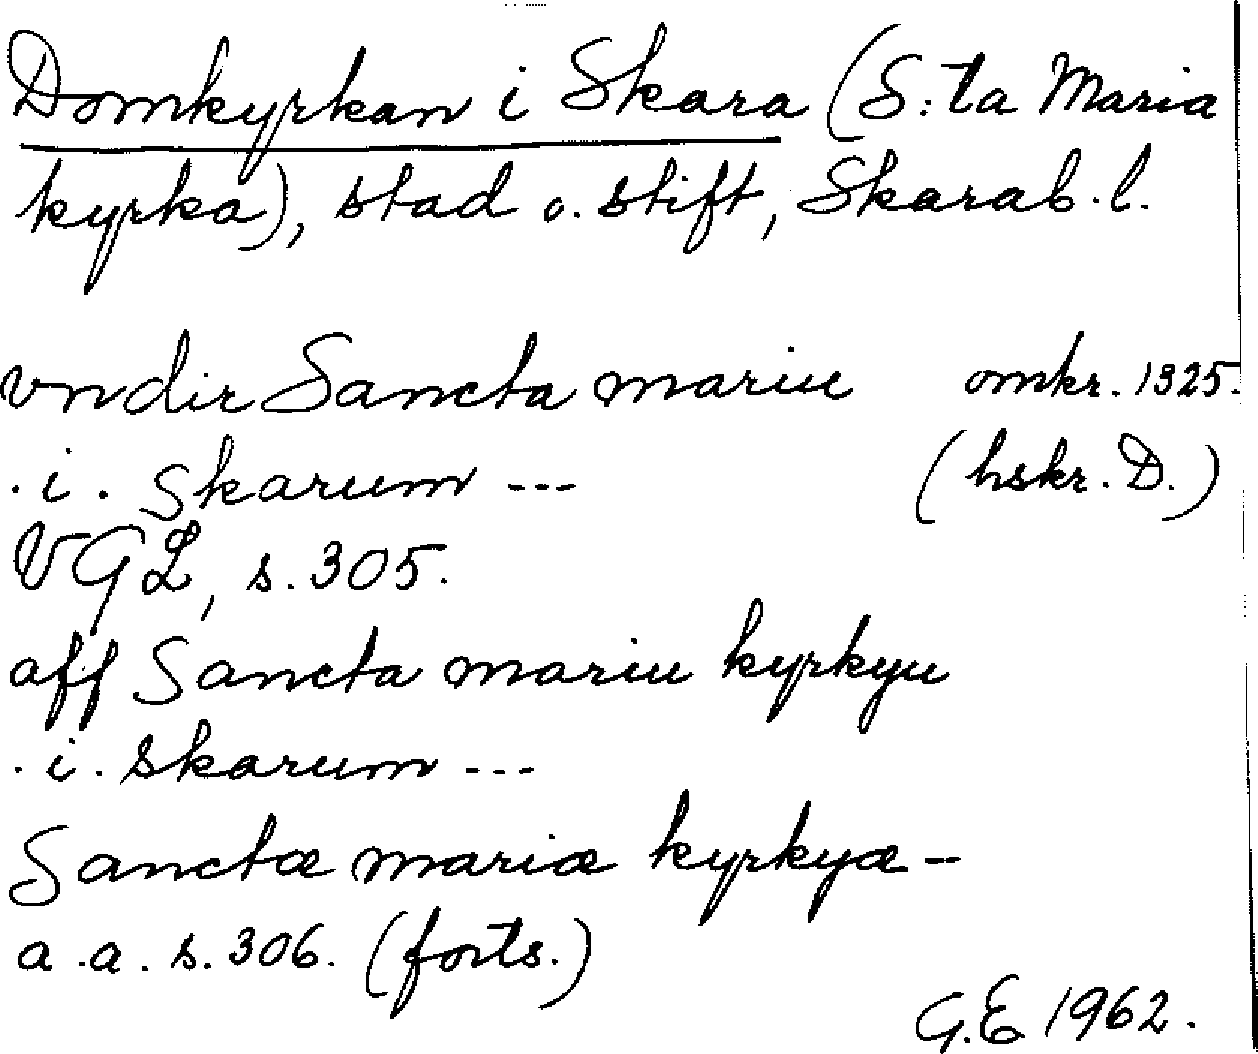 Domkyrkan i Skara (S:ta Maria
kyrka), stad o. stift, Skarab. l.
vndir Sancta mariu omkr. 1325.
. i . skarum --- (hskr. D.)
VGL, s. 305.
aff Sancta mariu kyrkyu
. i . skarum ---
Sanctæ mariæ kyrkyæ -
a. a. s. 306. (forts.)
G.E 1962.